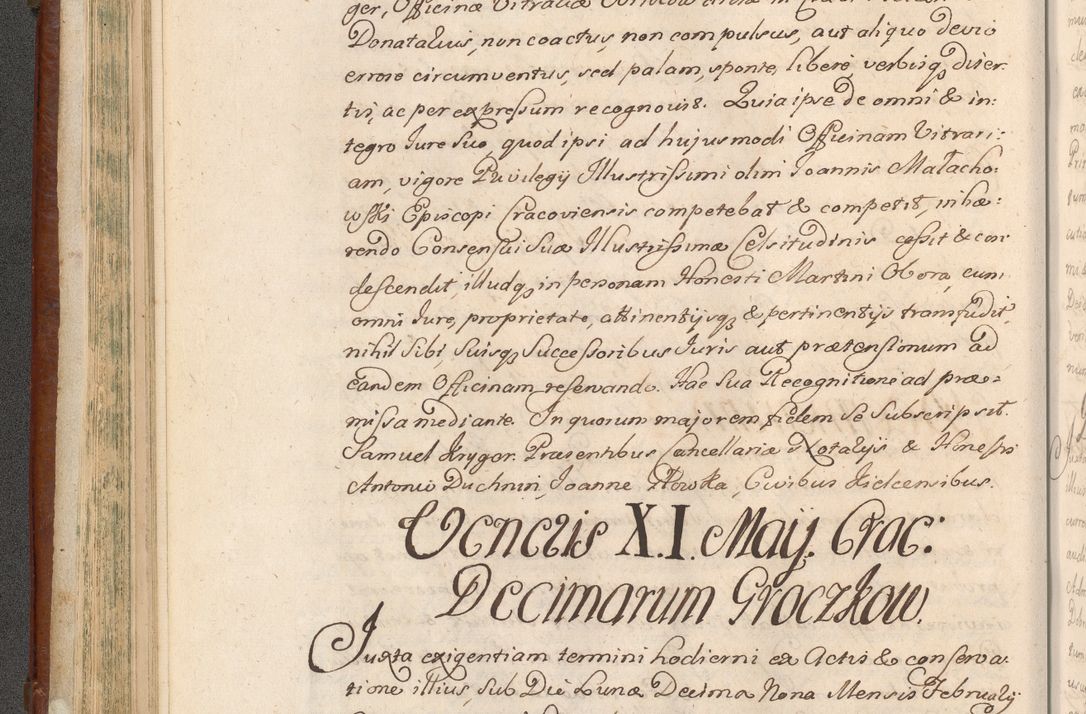 ger, Officinæ Vitrariæ
Donatalius, non coactus, non compulsus, aut aliquo devio
errore circumventus, sed palam, sponte, libere, verbisq; diser-
tis, ac per expressum recognouit. Quia ipse de omni & in:
tegro Jure Suo, quod ipsi ad hujusmodi Officinam Vitrari:
am, vigore Privilegij Illustrissimi olim Joannis Małacho:
wski Episcopi Cracoviensis competebat & competit, inhæ:
rendo Consensui Suæ Illustrissimæ Celsitudinis cessit & con
descendit, illudq; in personam Honesti Martini Obora, cum
omni Jure, proprietate, attinentijsq; & pertinentijs transfudit,
nihil Sibi Suisq; Successoribus Juris aut prætensionum ad
eandem Officinam reservando. Hac Sua Recognitione ad præ=
missa mediante. In quorum majorem fidem Se Subscripsit.
Samuel Krygor. Præsentibus Cancellariæ Notarijs & Honestis
Antonio Duchnin, Joanne Głowka, Civibus Kielcensibus.
Veneris X.I. Maij. Crac:
Decimarum Groczkow.
Juxta exigentiam termini hodierni ex Actis & conserva:
tione illius, Sub Die Lunæ Decima Nona Mensis Februarij